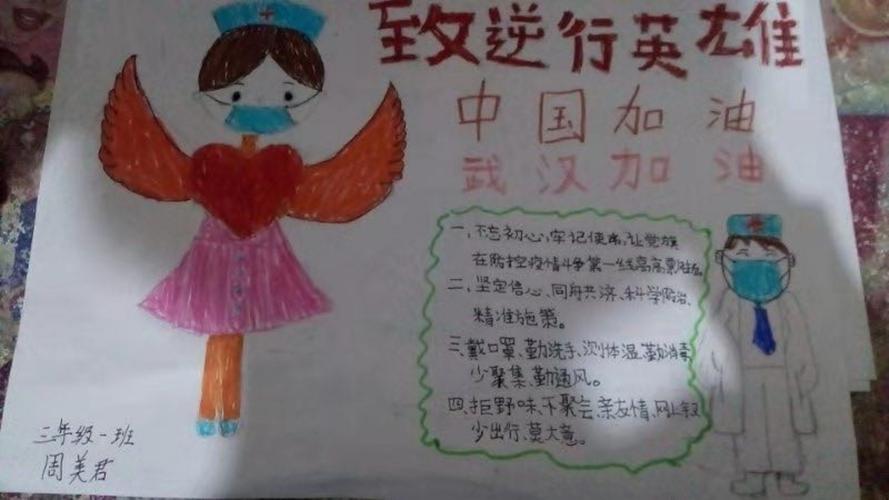 致逆行英雄
中国加油
武汉加油
一、不忘初心,牢记使命,让党旗
在防控疫情斗争第一线高高飘扬
二、坚定信心、同舟共济、科学防治、
精准施策。
三、戴口罩、勤洗手、测体温、勤消毒
少聚集、勤通风。
四、拒野味、不聚会、亲友情、网上叙
少出行、莫大意。
三年级一班
周美君